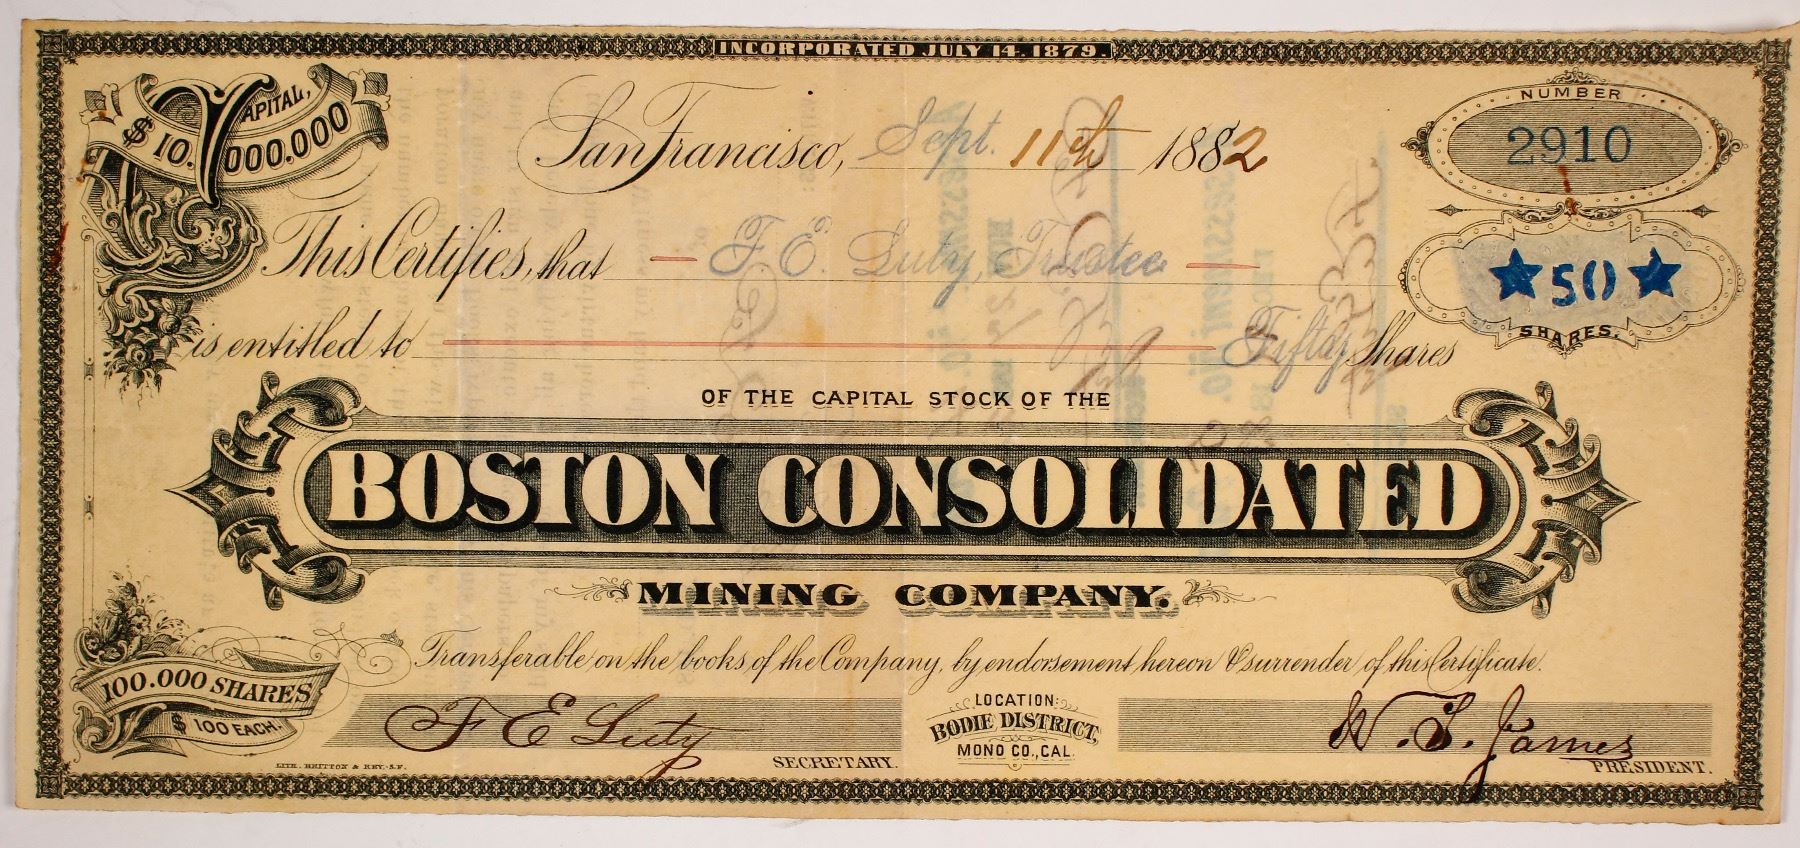 INCORPORATED JULY 14. 1879.
CAPITAL,
$10.000.000
San Francisco, Sept. 11th 1882
NUMBER
2910
This Certifies, that — F. E. Luty, Trustee —
★ 50 ★
SHARES.
is entitled to Fifty Shares
OF THE CAPITAL STOCK OF THE
BOSTON CONSOLIDATED
MINING COMPANY.
Transferable on the books of the Company, by endorsement hereon & surrender of this Certificate.
100.000 SHARES
$100 EACH.
F E Luty
SECRETARY.
LOCATION:
BODIE DISTRICT,
MONO CO., CAL.
W. T. James
PRESIDENT.
LITH. BRITTON & REY, S.F.